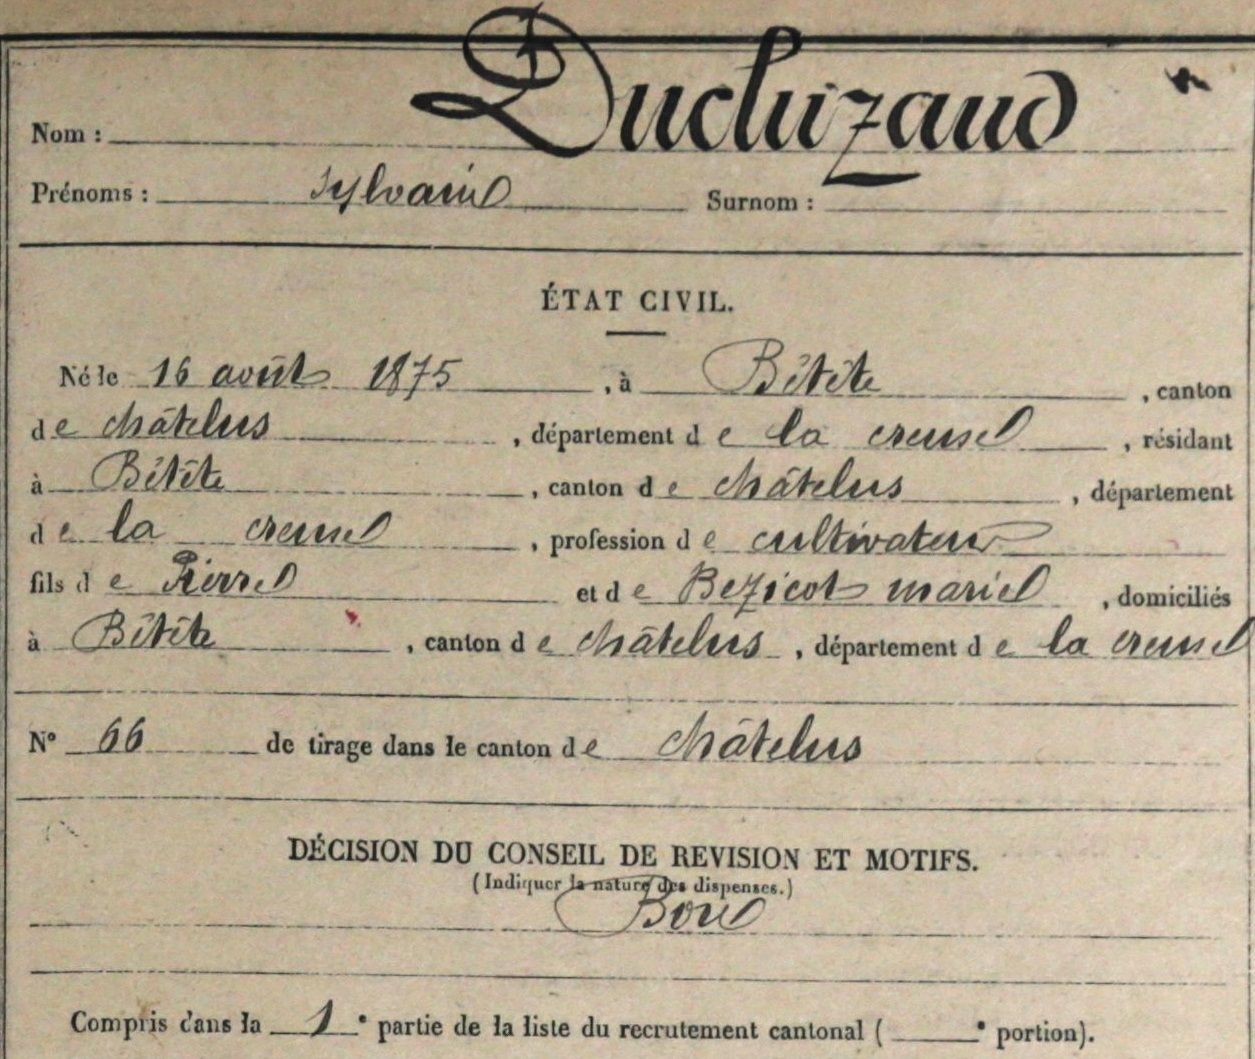 Nom : Ducluzaud
Prénoms : Sylvain Surnom :
ÉTAT CIVIL.
Né le 16 août 1875, à Bétête, canton
de Châtelus, département de la Creuse, résidant
à Bétête, canton de Châtelus, département
de la Creuse, profession de cultivateur
fils de Pierre et de Bezicot Marie, domiciliés
à Bétête, canton de Châtelus, département de la Creuse
N° 66 de tirage dans le canton de Châtelus
DÉCISION DU CONSEIL DE REVISION ET MOTIFS.
(Indiquer la nature des dispenses.)
Bon
Compris dans la 1e partie de la liste du recrutement cantonal ( e portion).